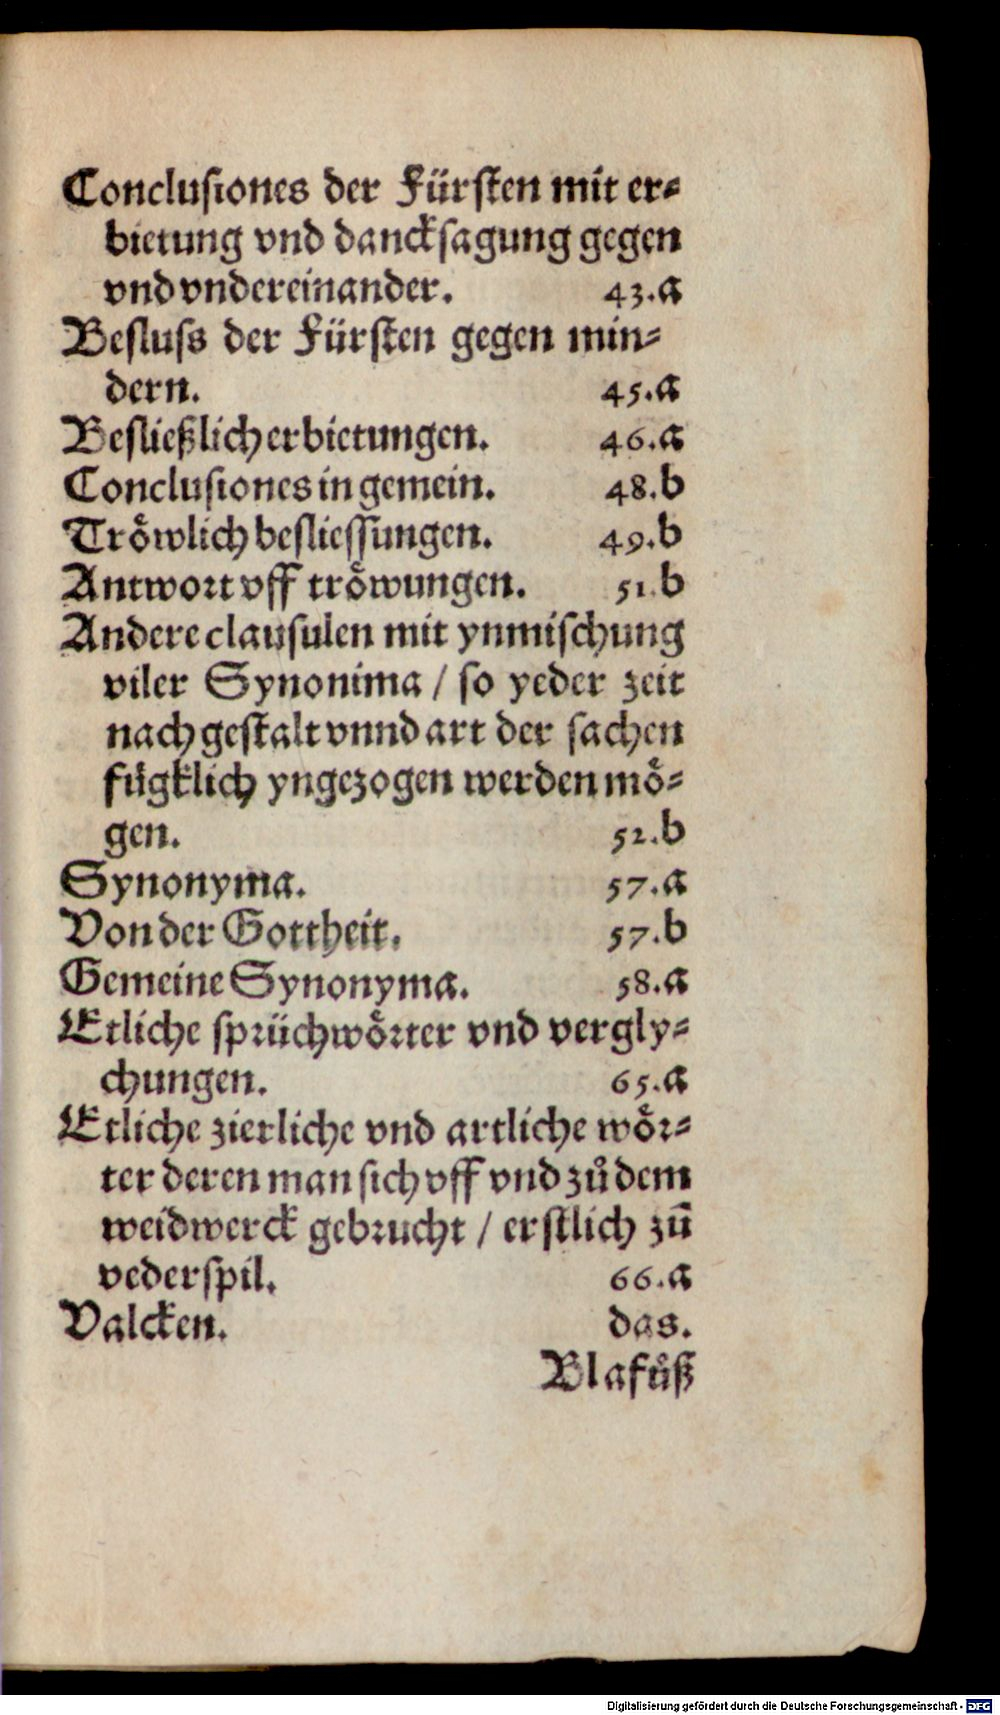 Conclusiones der Fürsten mit er⸗
bietung vnd dancksagung gegen
vnd vndereinander. 43.a
Besluss der Fürsten gegen min⸗
dern. 45.a
Besließlich erbietungen. 46.a
Conclusiones in gemein. 48.b
Tröwlich besliessungen. 49.b
Antwort vff tröwungen. 51.b
Andere clausulen mit ynmischung
viler Synonima / so yeder zeit
nach gestalt vnnd art der sachen
fügklich yngezogen werden mö⸗
gen. 52.b
Synonyma. 57.a
Von der Gottheit. 57.b
Gemeine Synonyma. 58.a
Etliche sprüchwörter vnd vergly⸗
chungen. 65.a
Etliche zierliche vnd artliche wör⸗
ter deren man sich vff vnd zů dem
weidwerck gebrucht / erstlich zū
vederspil. 66.a
Valcken. das.
Blafůß
Digitalisierung gefördert durch die Deutsche Forschungsgemeinschaft - DFG